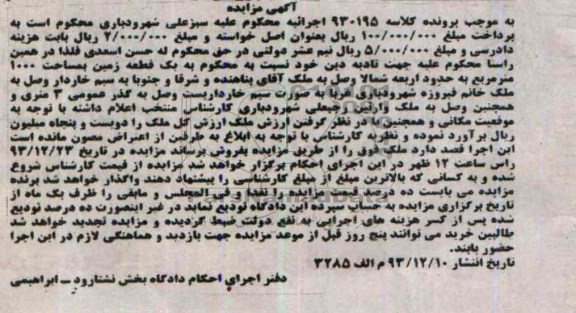 آگهی مزایده
به موجب پرونده کلاسه ۹۳۰۱۹۵ اجرائیه محکوم علیه سبزعلی شهرودباری محکوم است به
پرداخت مبلغ ۱۰۰/۰۰۰/۰۰۰ ریال بعنوان اصل خواسته و مبلغ ۲/۰۰۰/۰۰۰ ریال بابت هزینه
دادرسی و مبلغ ۵/۰۰۰/۰۰۰ ریال نیم عشر دولتی در حق محکوم له حسن اسعدی فلذا در همین
راستا محکوم علیه جهت تادیه دین خود نسبت به محکوم به یک قطعه زمین بمساحت ۱۰۰۰
مترمربع به حدود اربعه شمالا وصل به ملک آقای پناهنده و شرقا و جنوبا به سیم خاردار وصل به
ملک خانم فیروزه شهرودباری غربا به صورت سیم خارداریست وصل به گذر عمومی ۳ متری و
همچنین وصل به ملک وارثین رحیمعلی شهرودباری کارشناس منتخب اعلام داشته با توجه به
موقعیت مکانی و همچنین در نظر گرفتن ارزش ملک ارزش کل ملک را دویست و پنجاه میلیون
ریال برآورد نموده و نظریه کارشناس با توجه به ابلاغ به طرفین از اعتراض مصون مانده است
این اجرا قصد دارد ملک فوق را از طریق مزایده بفروش برساند مزایده در تاریخ ۹۳/۱۲/۲۳
راس ساعت ۱۲ ظهر در این اجرای احکام برگزار خواهد شد مزایده از قیمت کارشناس شروع
شده و به کسانی که بالاترین مبلغ از مبلغ کارشناسی را پیشنهاد دهند واگذار خواهد شد برنده
مزایده می بایست ده درصد قیمت مزایده را نقدا فی المجلس و مابقی را ظرف یک ماه از
تاریخ برگزاری مزایده به حساب سپرده این دادگاه تودیع نماید در غیر اینصورت ده درصد تودیع
شده پس از کسر هزینه های اجرایی به نفع دولت ضبط گردیده و مزایده تجدید خواهد شد
طالبین خرید می توانند پنج روز قبل از موعد مزایده جهت بازدید و هماهنگی لازم در این اجرا
حضور یابند.
تاریخ انتشار ۹۳/۱۲/۱۰ م الف ۳۲۸۵
دفتر اجرای احکام دادگاه بخش نشتارود ـ ابراهیمی